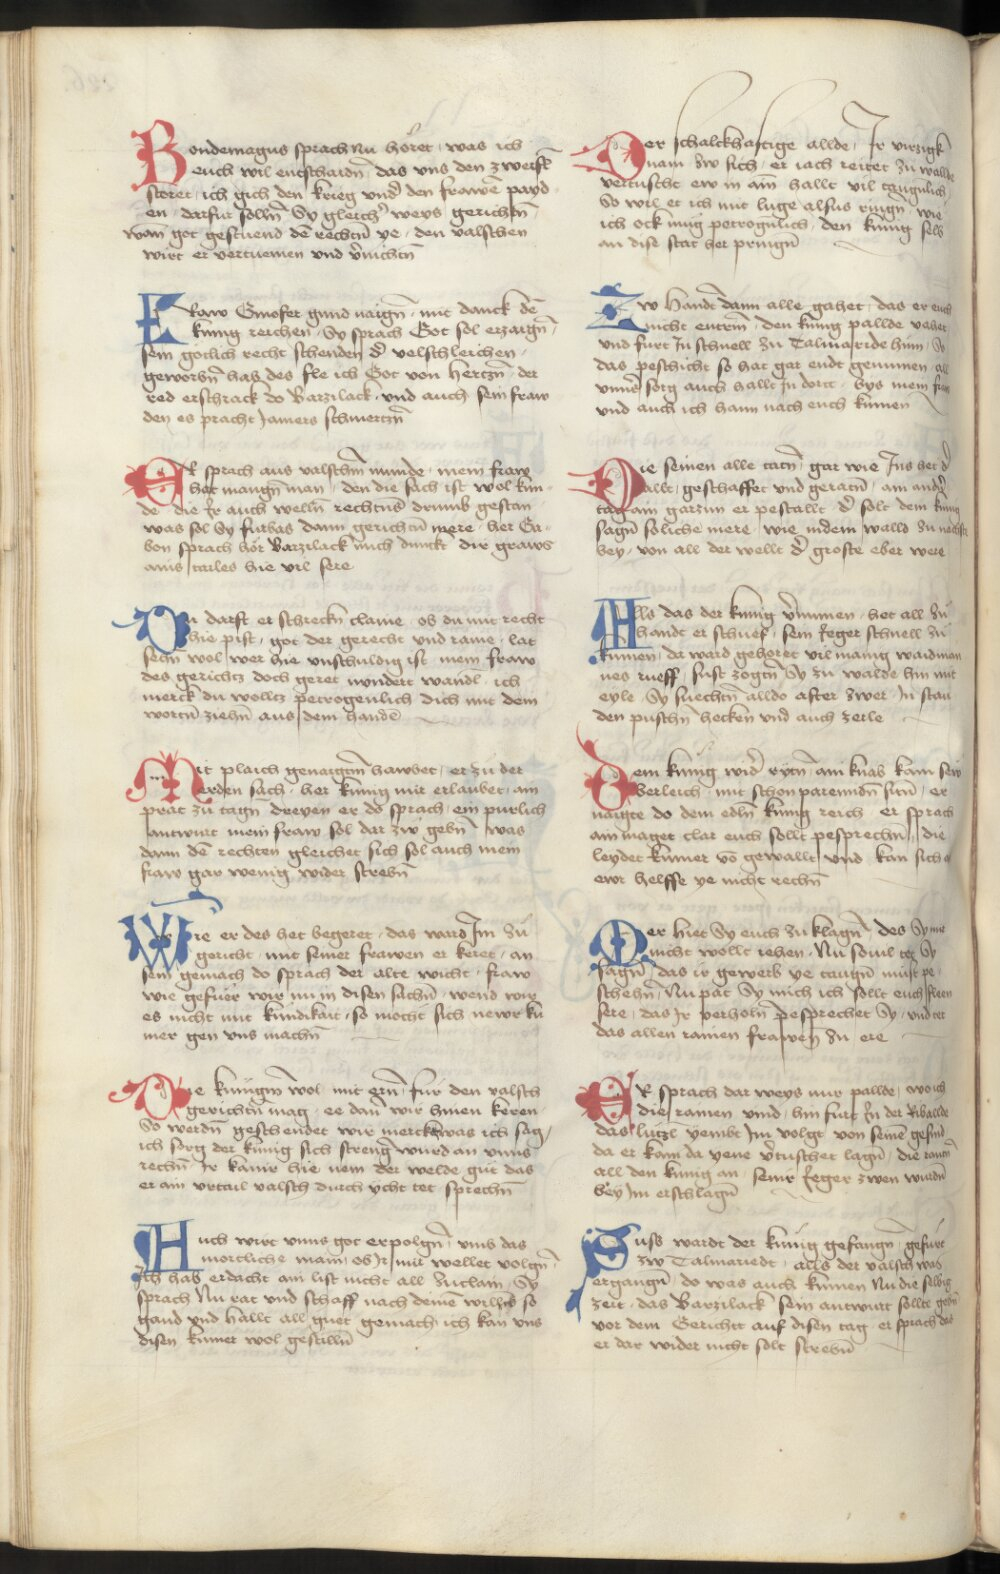 Bondemagus sprach Nu höret · was ich
euch wil entschaidn̄ · das uns den zweifl
störet · ich gich den krieg vnd̄ den frawē payd
en · darfur sollen Sy gleich̄ weys gerichtn̄ ·
wan got gestuend dē rechtn̄ ye · den valschen
wirt er vertuemen vnd v̄nichtn̄
Fraw Ginofer gund naign̄ · mit danck dē
kunig reichen · Sy sprach Got sol erzaign̄ ·
sein gotlich recht schenden d̄ velschleichen ·
geworbn̄ hab des fle ich Got von hertzn̄ · der
red erschrack do Barzilack · vnd auch sein fraw
den es pracht Jamers schmertzn̄
ER sprach aus valschm̄ munde · mein fraw
hat maugn̄ man · den die sach ist wol kun
de · die Ir auch welln̄ rechtens drumb gestan ·
was sol Sy furbas dann gerichtn̄ mere · her Ga
bon sprach hör Barzilack mich dunckt dir graws
ains tailes hie vil sere
Du darfst er schreckn̄ claine · ob du mit recht
hie pist · got der gerecht vnd raine · lat
sechn̄ wol wer hie vnschuldig ist · mein fraw
des gerichtz doch geret nyndert wandl · ich
merck du wolltz petrogenlich dich mit dem
wortn̄ ziehn̄ aus dem handē
Mit plaich genaigtm̄ hawbet · er zu der
werden sach · her kunig mir erlaubet · am
prat zu tagn̄ dreyen er do sprach · ein purlich
antwurt mein fraw sol dar zw gebn̄ · was
dann dē rechten gleichet sich sol auch mein
fraw gar wenig wider strebn̄
Wie er des het begeret · das ward Im zu
gericht · mit seiner frawen er keret · an
sein gemach do sprach der alte wicht · fraw
wie gefuer wir nu in disen sachn̄ · wend wir
es nicht mit kundikait · so mocht sich newr ku
mer gen vns machn̄
Die kunigin wol mit ern̄ · fur den valsch
gerichtn̄ mag · ee dan wir hinen keren ·
So werdn̄ geschendet wir merckt was ich sag /
ich sorg der kunig sich streng wurd an vnns
rechn̄ · Ir kainr hie nem der welde gut das
er ain vrtail valsch durch ycht tet sprechn̄
Auch wirt vnns got erpolgn̄ · vmb das
mortliche main · ob Ir mir wellet volgn̄ ·
Ich hab erdacht ain list nicht all zu clain · Sy
sprach Nu rat vnd schaff nach deinē willn̄ so
gand vnd hallt all guet gemach ich kan vns
disen kumer wol gestilln̄
Der schalckhaftige allde · Ir virzigk
nam zw sich · er iach reitet zu wallde
vertuscht ew in ain hallt vil taugnlich
So wil et ich mit luge alsus ringn̄ · wie
ich ock mug petrognlich · den kunig selb
an dise stat her pringn̄
Zw Handt dann alle gahet · das er euch
nicht entrin̄ · den kunig pallde vahet
vnd furt Jn schnell zu Talmaride hinn · So
das peschicht so hat gar endt genumen · all
vnnser sorg auch hallt Jn dort · bys mein fraw
vnd auch ich hann nach euch kumen
Die seinen alle tatn̄ · gar wie Ins het d̄
allt · geschaffet vnd geratn̄ · am andn̄
tag ain garzun er pestallt · d̄ solt dem kunig
sagn̄ soliche mere · wie indem walld zu nachst
bey · von all der wellt d̄ groste eber were
Alls das der kunig v̄numen · het all zu
handt er schuef · sein Jeger schnell zu
kumen · da ward gehoret vil manig waidman
nes rueff · sust zogtn̄ Sy zu walde hin mit
eyle · Sy suechtn̄ alldo after zwer · in stau
den puschn̄ hecken vnd auch zeile
Dem kunig wid̄ rytn̄ · ain knab kam sein
berleich · mit schon parenndn̄ sitn̄ · er
naigte do dem edln̄ kunig reich · er sprach
ain maget clar euch sollt pesprechn̄ · die
leydet kumer vō gewallt vnd kan sich on
ewr helffe ye nicht rechn̄
Der hiet Sy euch zu klagn̄ · des Sy nie
nicht wollt iehen · Nu souil tet Sy
sagn̄ · das ir gewerb ye taugn̄ must pe
schehn̄ · Nu pat Sy mich ich sollt euch fleen
sere · das Ir verholn̄ pesprechet Sy · vnd tet
das allen rainen frawen zu ere
ER sprach dar weys mir pallde · wo ich
die rainen vind · hin furt In der Riballde
das lutzl yembt Im volgt von seinē gesind
da er kam da yene v̄tuschet lagn̄ · die rantn̄
all den kunig an · seinr Jeger zwen wurdn̄
bey Im erschlagn̄
Suss wardt der kunig gefangn̄ · gefurt
zw Talmariedt · alls der valsch was
ergangn̄ · do was auch kumen Nu die selbig
zeit · das Barzilack sein antwurt sollte gebn̄
vor dem Gericht auf disen tag · er sprach das
er dar wider nicht solt strebn̄